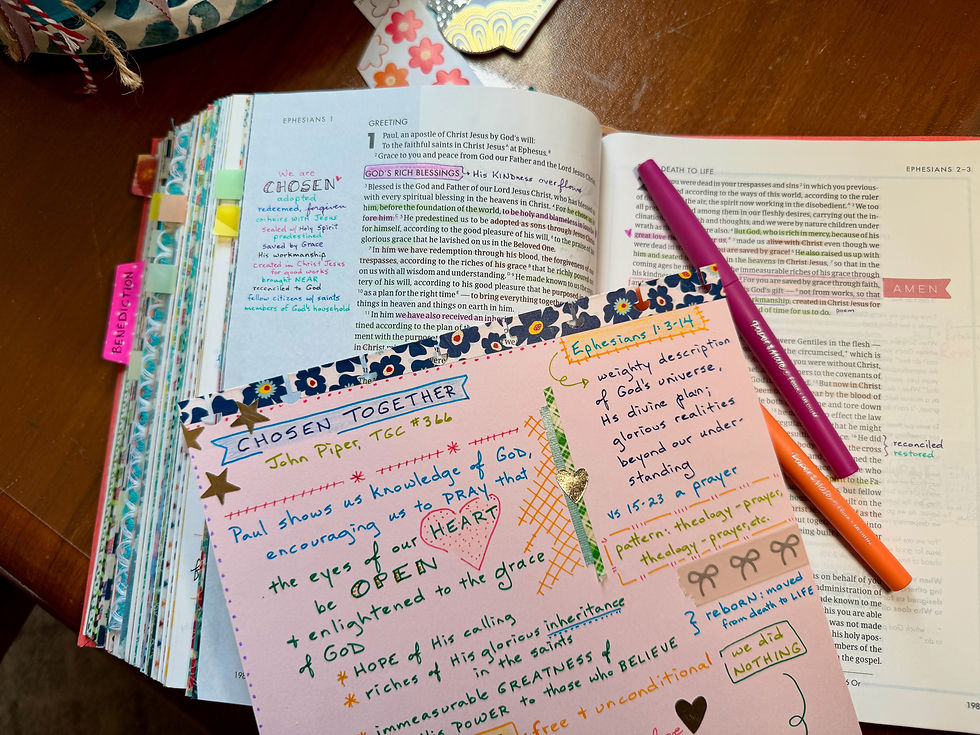 EPHESIANS 1
GREETING
1 Paul, an apostle of Christ Jesus by God's will:
To the faithful saints in Christ Jesus at Ephesus.
2 Grace to you and peace from God our Father and the Lord Jesus
GOD'S RICH BLESSINGS His KINDNESS overflows
3 Blessed is the God and Father of our Lord Jesus Christ, who has blessed
with every spiritual blessing in the heavens in Christ. 4 For he chose
him, before the foundation of the world, to be holy and blameless in love be-
fore him. 5 He predestined us to be adopted as sons through Jesus Christ
for himself, according to the good pleasure of his will, 6 to the praise
glorious grace that he lavished on us in the Beloved One.
7 In him we have redemption through his blood, the forgiveness of our
trespasses, according to the riches of his grace 8 that he richly poured
on us with all wisdom and understanding. 9 He made known to us the
tery of his will, according to his good pleasure that he purposed
10 as a plan for the right time — to bring everything together
things in heaven and things on earth in him.
11 In him we have also received an
tined according to the plan of
ment with the purpose
in Christ
We are
CHOSEN
adopted
redeemed, forgiven
coheirs with Jesus
sealed w/ Holy Spirit
predestined
saved by Grace
His workmanship
created in Christ Jesus
for good works
brought NEAR
reconciled to God
fellow citizens w/ saints
members of God's household
BENEDICTION
DEATH TO LIFE
EPHESIANS 2–3
you were dead in your trespasses and sins 2 in which you previous-
according to the ways of this world, according to the ruler
of the air, the spirit now working in the disobedient. 3 We too
among them in our fleshly desires, carrying out the in-
and thoughts, and we were by nature children under
also. 4 But God, who is rich in mercy, because of his
great love
made us alive with Christ even though we
were dead in
you are saved by grace! 6 He also raised us up with
him and seated
in the heavens in Christ Jesus, 7 so that in the
coming ages he
immeasurable riches of his grace through
his kindness
8 For you are saved by grace through faith,
God's gift — 9 not from works, so that
workmanship, created in Christ Jesus for
of time for us to do. poem
AMEN
were Gentiles in the flesh —
the circumcised," which is
you were without Christ,
to the covenants of
13 But now in Christ
by the blood of
one and tore down
effect the law
that he might
16 He did
the cross
reconciled
restored
but fellow
on behalf of you
administration of
made known to me
this you are able
was not made
his holy apos-
members of the
the gospel.
198
CHOSEN TOGETHER
John Piper, TGC #366
Paul shows us knowledge of GOD,
encouraging us to PRAY that
the eyes of our HEART
be OPEN
+ enlightened to the grace
of GOD
* HOPE of His calling
* riches of His glorious inheritance
in the saints
* immeasurable GREATNESS of
His POWER to those who BELIEVE
free + unconditional
Ephesians 1:3-14
weighty description
of God's universe,
His divine plan;
glorious realities
beyond our under-
standing
vs 15-23 a prayer
pattern: theology - prayer,
theology - prayer, etc.
reborN: moved
from death to LIFE
we did
NOTHING
paper mate
paper mate